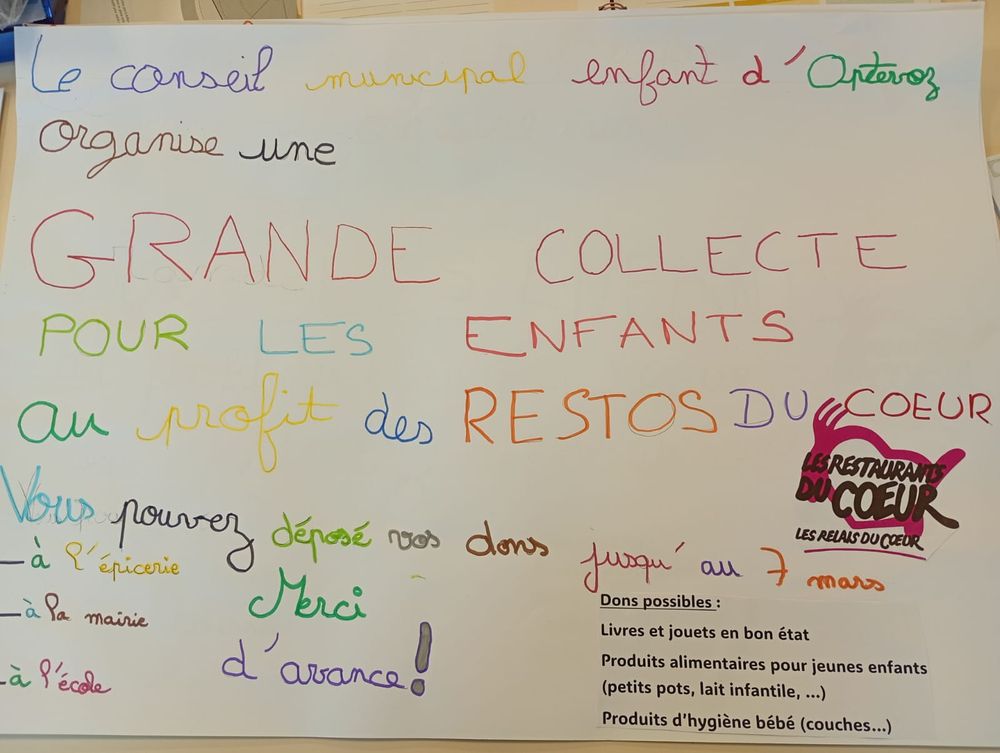 Le conseil municipal enfant d'Optevoz
organise une
GRANDE COLLECTE
POUR LES ENFANTS
au profit des RESTOS DU COEUR
LES RESTAURANTS
DU COEUR
LES RELAIS DU CŒUR
Vous pouvez déposé vos dons jusqu'au 7 mars
- à l'épicerie
- à la mairie
- à l'école
Merci
d'avance!
Dons possibles :
Livres et jouets en bon état
Produits alimentaires pour jeunes enfants
(petits pots, lait infantile, ...)
Produits d'hygiène bébé (couches...)